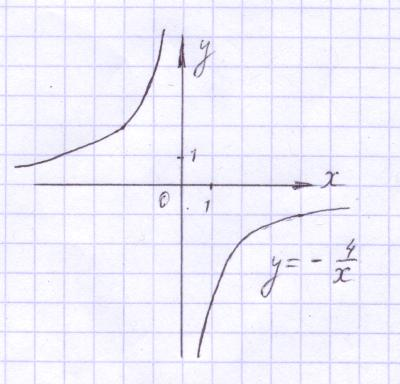 y
1
x
0
1
y = - 4/x